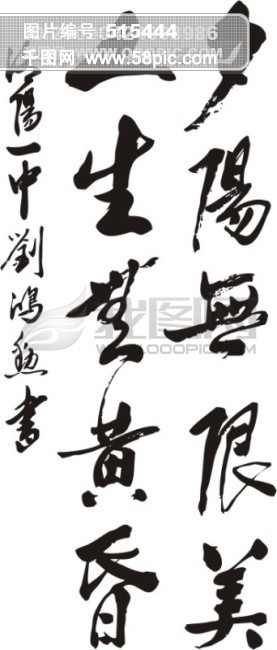 夕陽無限美
人生莫黃昏
陽一中劉鴻勋書
图片编号:515444
千图网 www.58pic.com
我图网
WWW.OOOPIC.COM